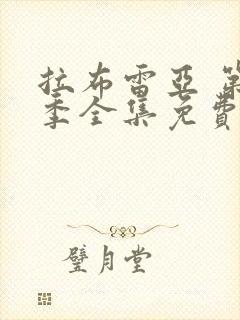 拉布雷亚 第
季全集免费
璧月堂